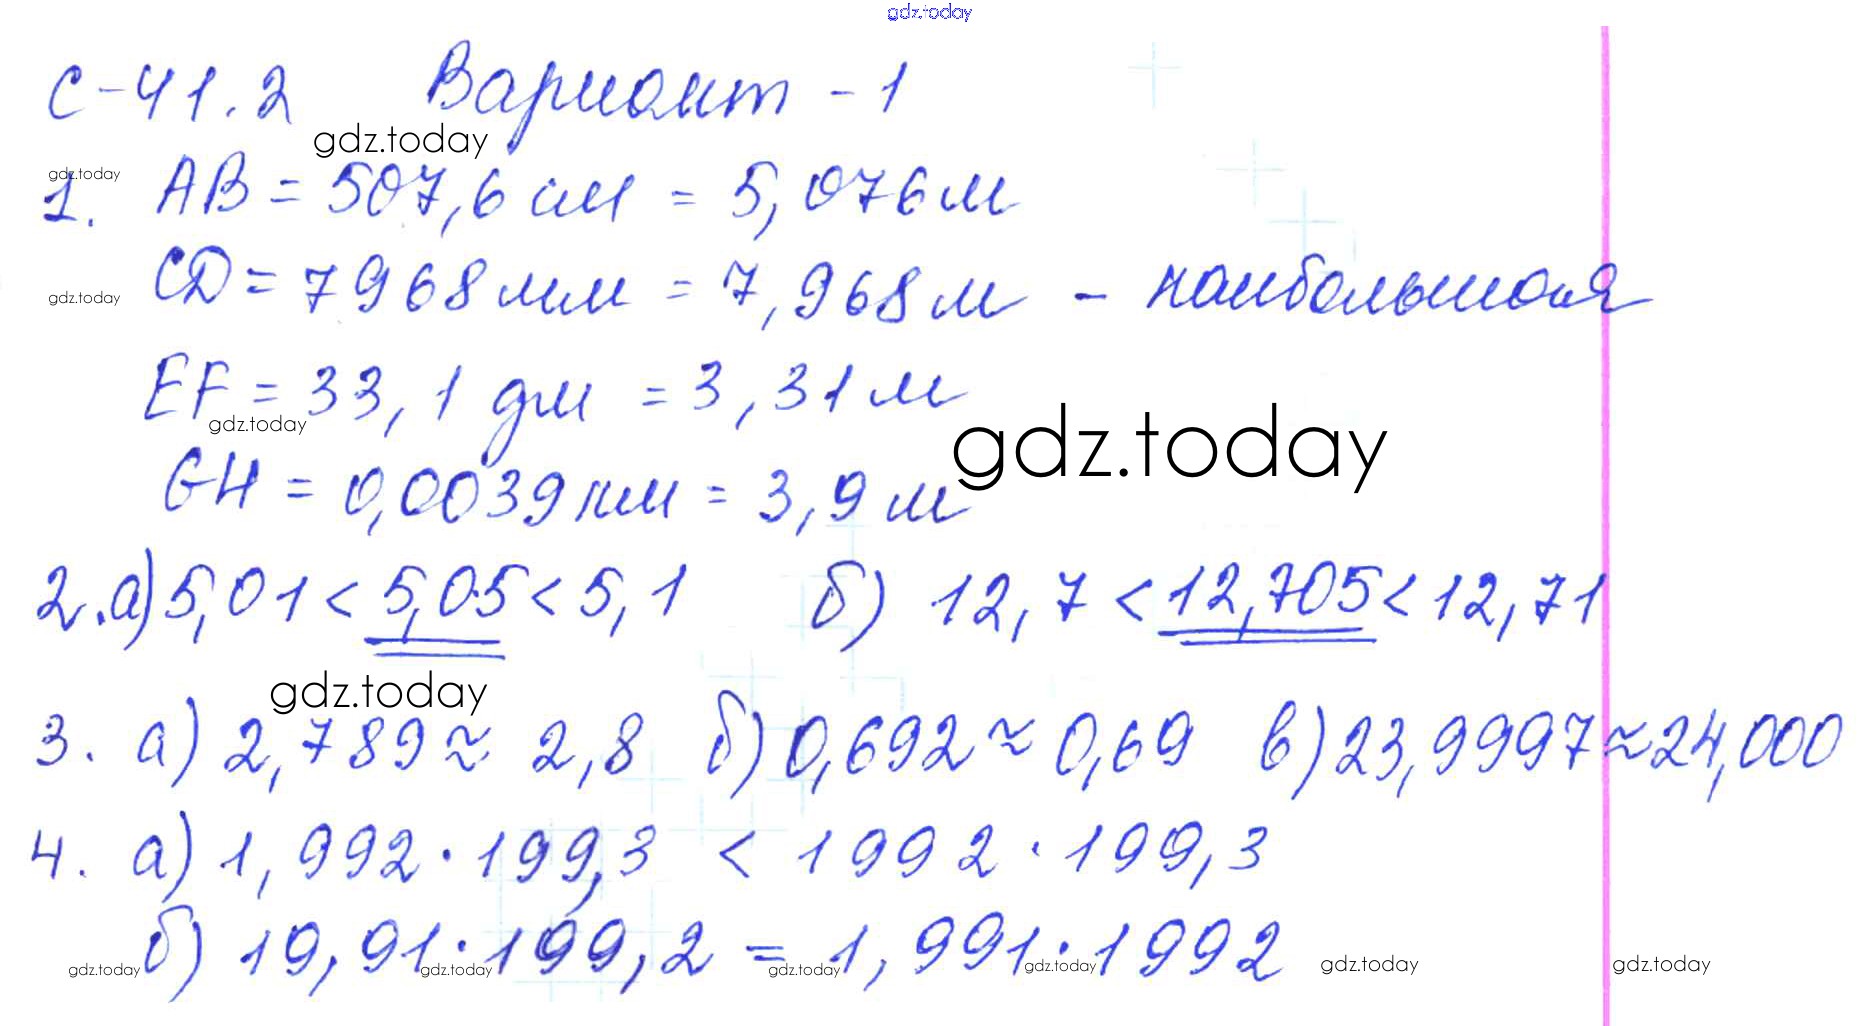 gdz.today
С-41.2 Вариант - 1
gdz.today
gdz.today
1. AB = 507,6 см = 5,076 м
CD = 7968 мм = 7,968 м - наибольшая
gdz.today
EF = 33,1 дм = 3,31 м
gdz.today
gdz.today
GH = 0,0039 км = 3,9 м
2. а) 5,01 < 5,05 < 5,1 б) 12,7 < 12,705 < 12,71
gdz.today
3. а) 2,789 ≈ 2,8 б) 0,692 ≈ 0,69 в) 23,9997 ≈ 24,000
4. а) 1,992 · 199,3 < 1992 · 199,3
б) 19,91 · 199,2 = 1,991 · 1992
gdz.today gdz.today gdz.today gdz.today gdz.today gdz.today